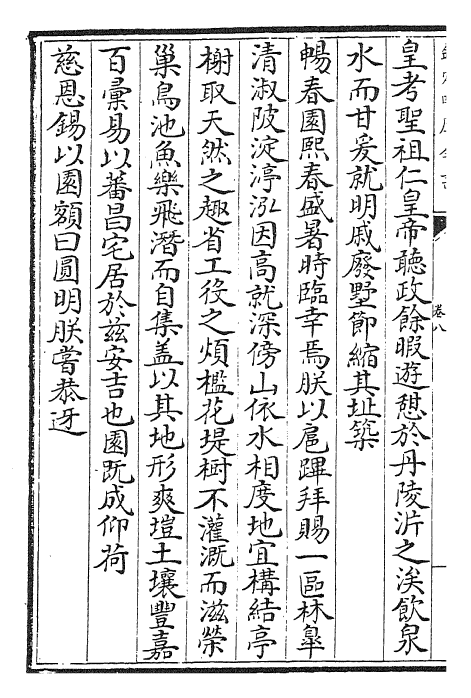 皇考聖祖仁皇帝聽政餘暇遊憩於丹陵沜之涘飲泉
水而甘爰就明戚廢墅節縮其址築
暢春園熙春盛暑時臨幸焉朕以扈蹕拜賜一區林臯
清淑陂淀渟泓因高就深傍山依水相度地宜構結亭
榭取天然之趣省工役之煩檻花堤樹不灌溉而滋榮
巢鳥池魚樂飛潛而自集盖以其地形爽塏土壤豐嘉
百彚易以蕃昌宅居於兹安吉也園既成仰荷
慈恩錫以園額曰圓明朕嘗恭迓
卷八